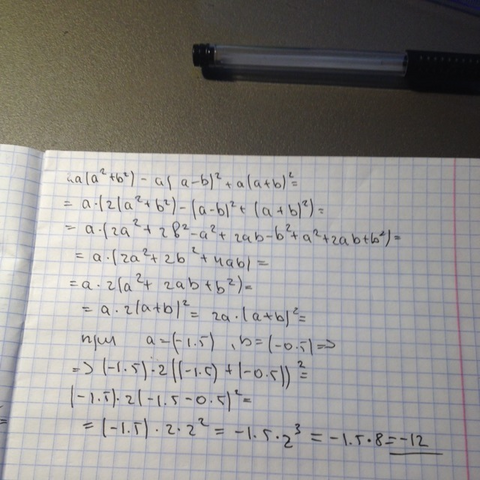 2a(a²+b²) - a(a-b)² + a(a+b)² =
= a·(2(a²+b²) - (a-b)² + (a+b)²) =
= a·(2a² + 2b² - a² + 2ab - b² + a² + 2ab + b²) =
= a·(2a² + 2b² + 4ab) =
= a·2(a² + 2ab + b²) =
= a·2(a+b)² = 2a·(a+b)² =
при a = (-1.5) , b = (-0.5) =>
=> (-1.5)·2((-1.5) + (-0.5))² =
(-1.5)·2(-1.5 - 0.5)² =
= (-1.5)·2·2² = -1.5·2³ = -1.5·8 = -12